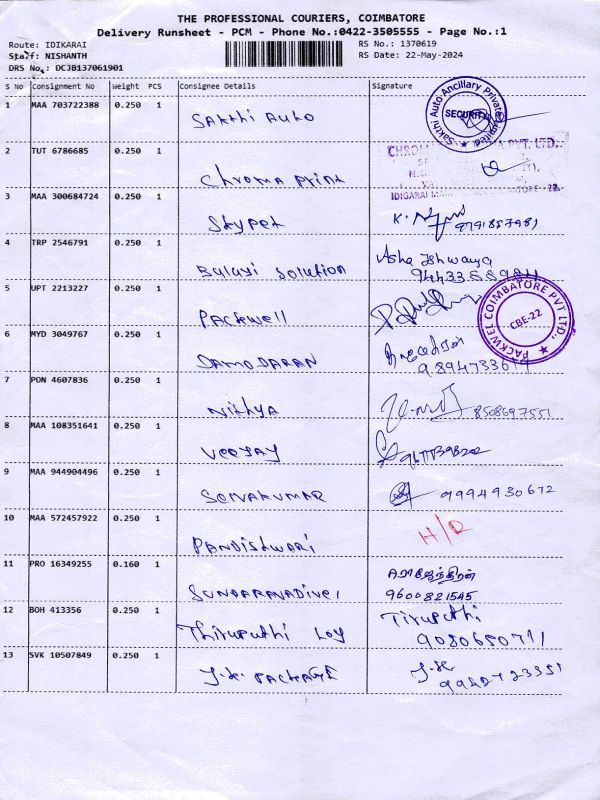 THE PROFESSIONAL COURIERS, COIMBATORE
Delivery Runsheet - PCM - Phone No.:0422-3505555 - Page No.:1
Route: IDIKARAI
RS No.: 1370619
Staff: NISHANTH
RS Date: 22-May-2024
DRS No.: DCJB137061901
S No Consignment No Weight PCS Consignee Details Signature
1 MAA 703722388 0.250 1 Sakthi Auto
Sakthi Auto Ancillary Private Limited
SECURITY
2 TUT 6786685 0.250 1 Chroma Print
PVT. LTD.,
3 MAA 300684724 0.250 1 Skypet
K.
4 TRP 2546791 0.250 1 Balayi Solution
Asha Ishwarya
5 UPT 2213227 0.250 1 Packwell
PACKWEL COIMBATORE PVT LTD.,
CBE-22
6 MYD 3049767 0.250 1 DAMODARAN
7 PON 4607836 0.250 1 Nithya
8508697551
8 MAA 108351641 0.250 1 VEEJAY
9 MAA 944904496 0.250 1 SELVAKUMAR
9994930672
10 MAA 572457922 0.250 1 PANDISHWARI
H/D
11 PRO 16349255 0.160 1 SUNDARAVADIVEL
9600821545
12 BOH 413356 0.250 1 Thiruputhi Loy
Tiruputhi
9080650711
13 SVK 10507849 0.250 1 J.K. PACKAGE
J.K.